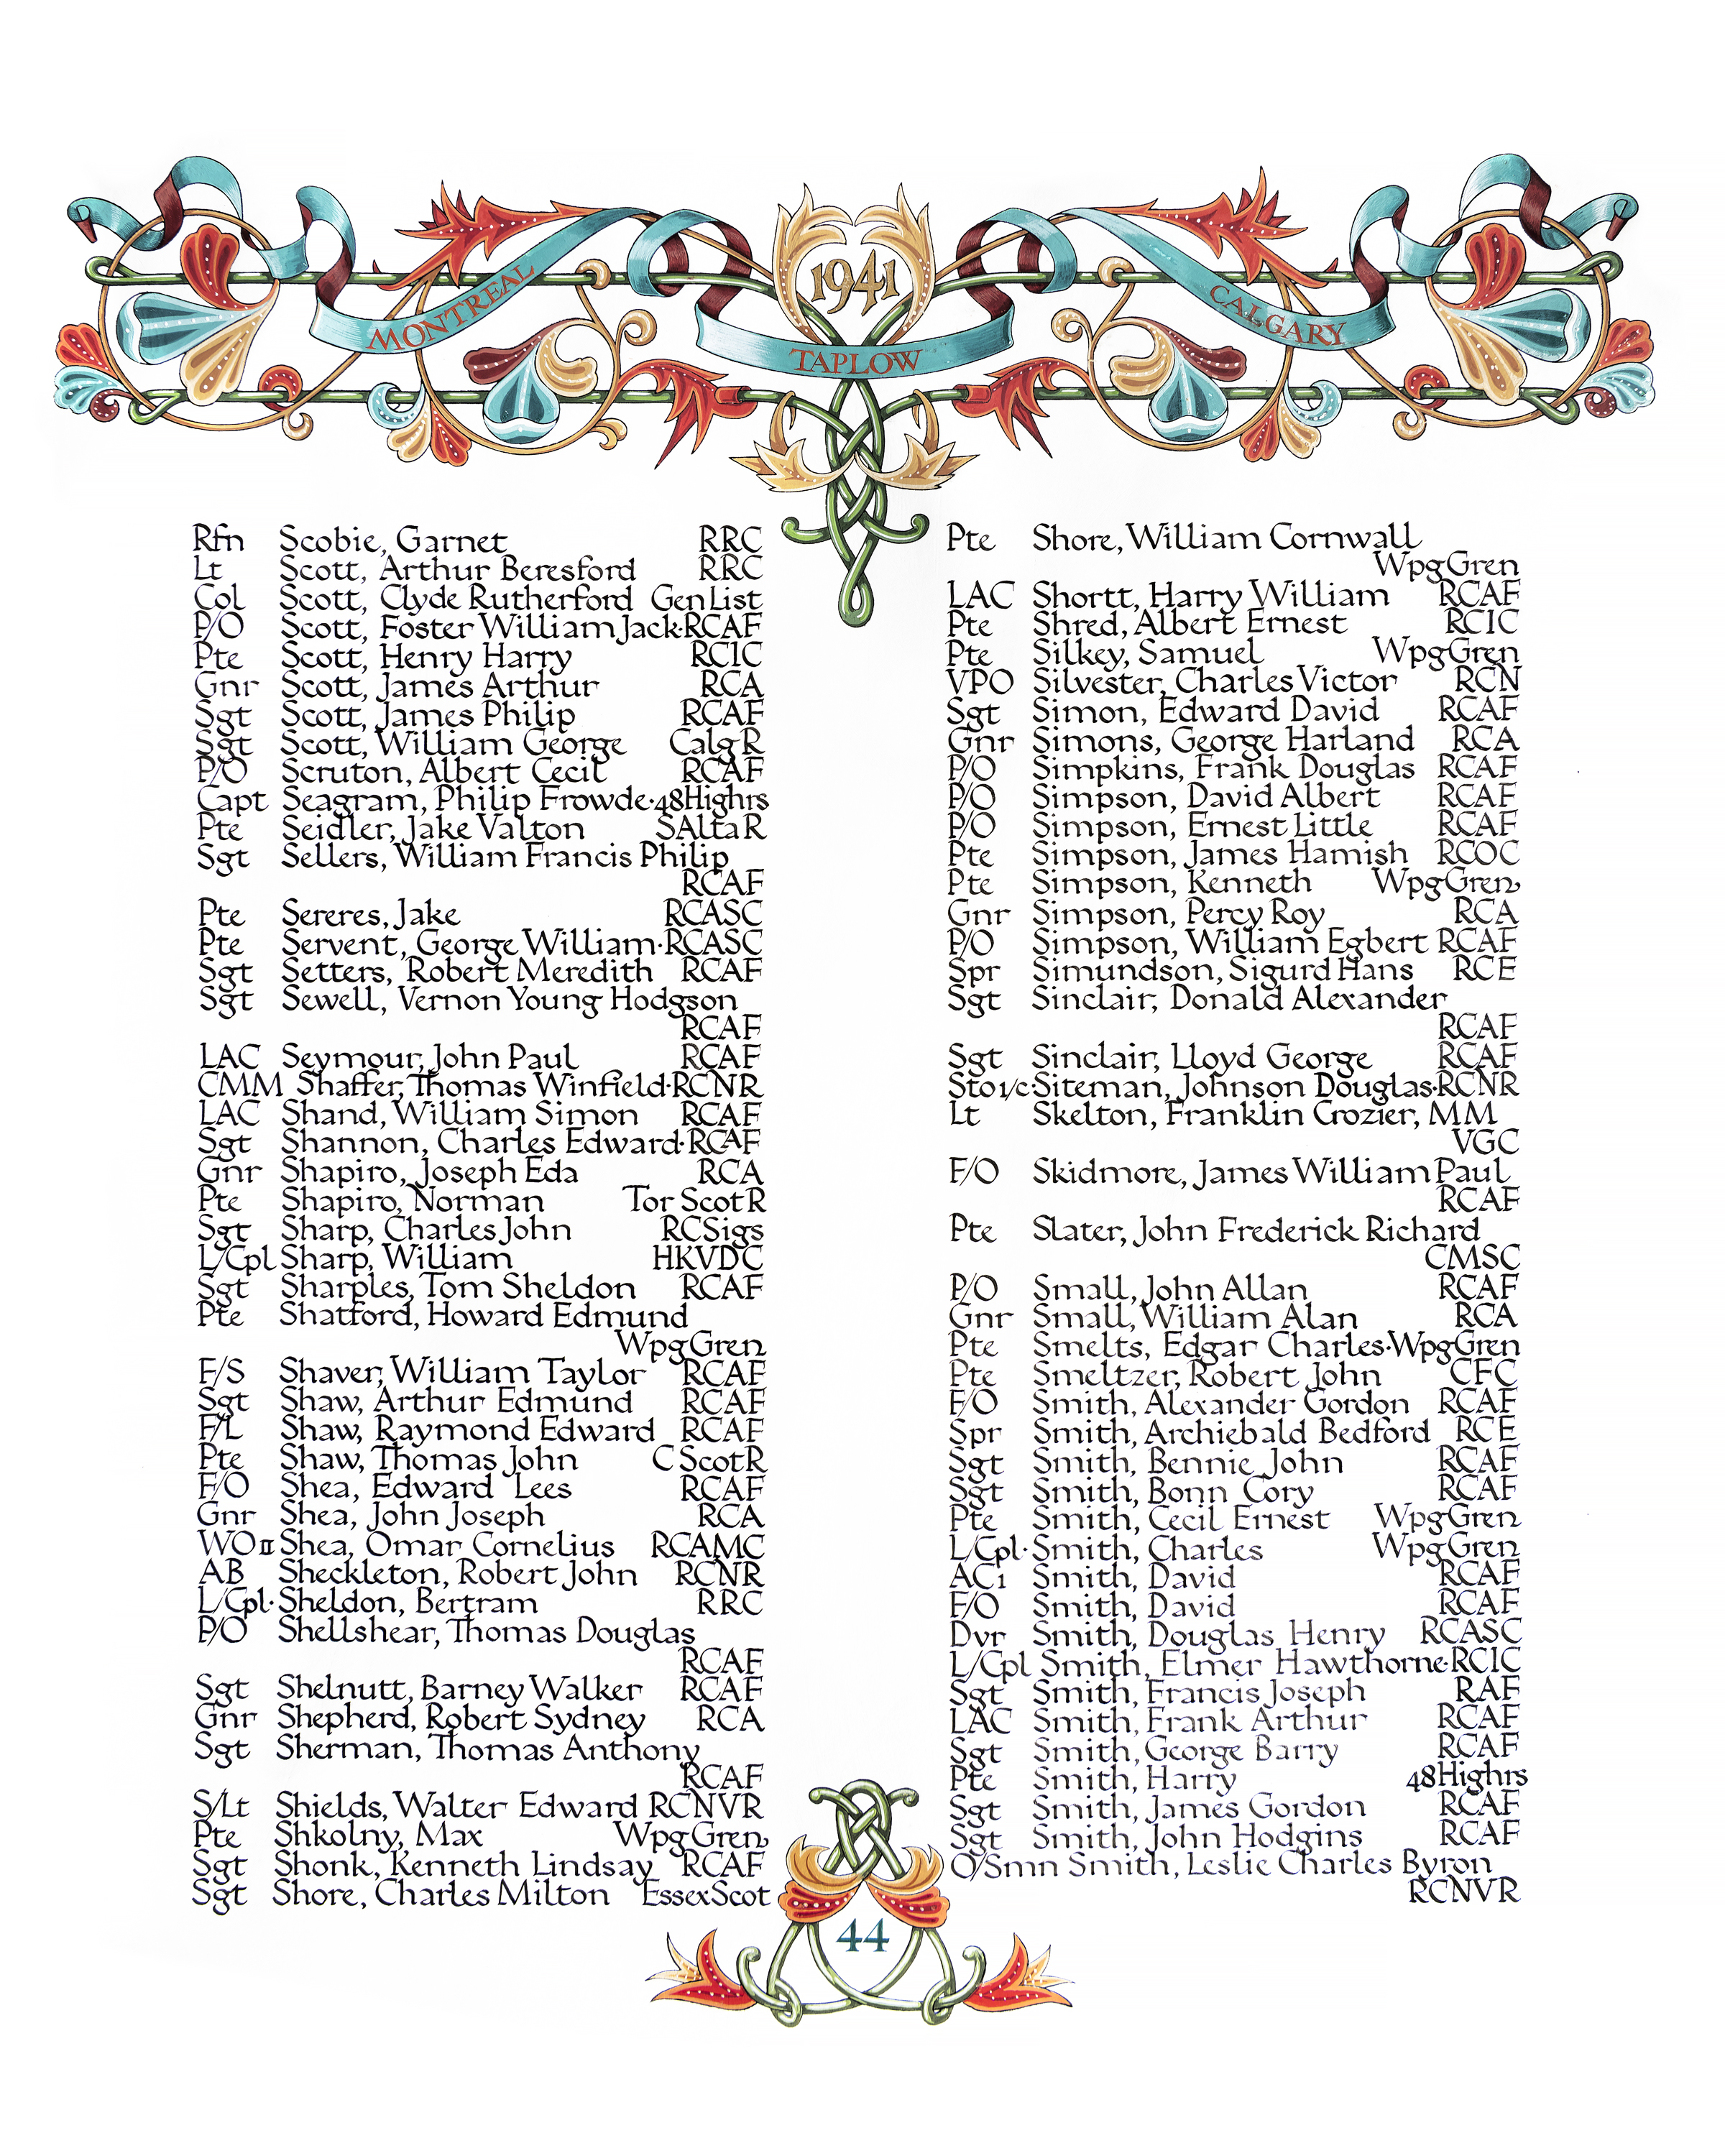 1941
MONTREAL
TAPLOW
CALGARY
Rfn Scobie, Garnet RRC
Lt Scott, Arthur Beresford RRC
Col Scott, Clyde Rutherford Gen List
P/O Scott, Foster William Jack·RCAF
Pte Scott, Henry Harry RCIC
Gnr Scott, James Arthur RCA
Sgt Scott, James Philip RCAF
Sgt Scott, William George Calg R
P/O Scruton, Albert Cecil RCAF
Capt Seagram, Philip Frowde·48 Highrs
Pte Seidler, Jake Valton S Alta R
Sgt Sellers, William Francis Philip
RCAF
Pte Sereres, Jake RCASC
Pte Servent, George William·RCASC
Sgt Setters, Robert Meredith RCAF
Sgt Sewell, Vernon Young Hodgson
RCAF
LAC Seymour, John Paul RCAF
CMM Shaffer, Thomas Winfield·RCNR
LAC Shand, William Simon RCAF
Sgt Shannon, Charles Edward·RCAF
Gnr Shapiro, Joseph Eda RCA
Pte Shapiro, Norman Tor Scot R
Sgt Sharp, Charles John RCSigs
L/Cpl Sharp, William HKVDC
Sgt Sharples, Tom Sheldon RCAF
Pte Shatford, Howard Edmund
Wpg Gren
F/S Shaver, William Taylor RCAF
Sgt Shaw, Arthur Edmund RCAF
F/L Shaw, Raymond Edward RCAF
Pte Shaw, Thomas John C Scot R
F/O Shea, Edward Lees RCAF
Gnr Shea, John Joseph RCA
WO II Shea, Omar Cornelius RCAMC
AB Sheckleton, Robert John RCNR
L/Cpl·Sheldon, Bertram RRC
P/O Shellshear, Thomas Douglas
RCAF
Sgt Shelnutt, Barney Walker RCAF
Gnr Shepherd, Robert Sydney RCA
Sgt Sherman, Thomas Anthony
RCAF
S/Lt Shields, Walter Edward RCNVR
Pte Shkolny, Max Wpg Gren
Sgt Shonk, Kenneth Lindsay RCAF
Sgt Shore, Charles Milton Essex Scot
Pte Shore, William Cornwall
Wpg Gren
LAC Shortt, Harry William RCAF
Pte Shred, Albert Ernest RCIC
Pte Silkey, Samuel Wpg Gren
VPO Silvester, Charles Victor RCN
Sgt Simon, Edward David RCAF
Gnr Simons, George Harland RCA
P/O Simpkins, Frank Douglas RCAF
P/O Simpson, David Albert RCAF
P/O Simpson, Ernest Little RCAF
Pte Simpson, James Hamish RCOC
Pte Simpson, Kenneth Wpg Gren
Gnr Simpson, Percy Roy RCA
P/O Simpson, William Egbert RCAF
Spr Simundson, Sigurd Hans RCE
Sgt Sinclair, Donald Alexander
RCAF
Sgt Sinclair, Lloyd George RCAF
Sto 1/c·Siteman, Johnson Douglas·RCNR
Lt Skelton, Franklin Crozier, MM
VGC
F/O Skidmore, James William Paul
RCAF
Pte Slater, John Frederick Richard
CMSC
P/O Small, John Allan RCAF
Gnr Small, William Alan RCA
Pte Smelts, Edgar Charles·Wpg Gren
Pte Smeltzer, Robert John CFC
F/O Smith, Alexander Gordon RCAF
Spr Smith, Archiebald Bedford RCE
Sgt Smith, Bennie John RCAF
Sgt Smith, Bonn Cory RCAF
Pte Smith, Cecil Ernest Wpg Gren
L/Cpl·Smith, Charles Wpg Gren
AC1 Smith, David RCAF
F/O Smith, David RCAF
Dvr Smith, Douglas Henry RCASC
L/Cpl Smith, Elmer Hawthorne·RCIC
Sgt Smith, Francis Joseph RAF
LAC Smith, Frank Arthur RCAF
Sgt Smith, George Barry RCAF
Pte Smith, Harry 48 Highrs
Sgt Smith, James Gordon RCAF
Sgt Smith, John Hodgins RCAF
O/Smn Smith, Leslie Charles Byron
RCNVR
44